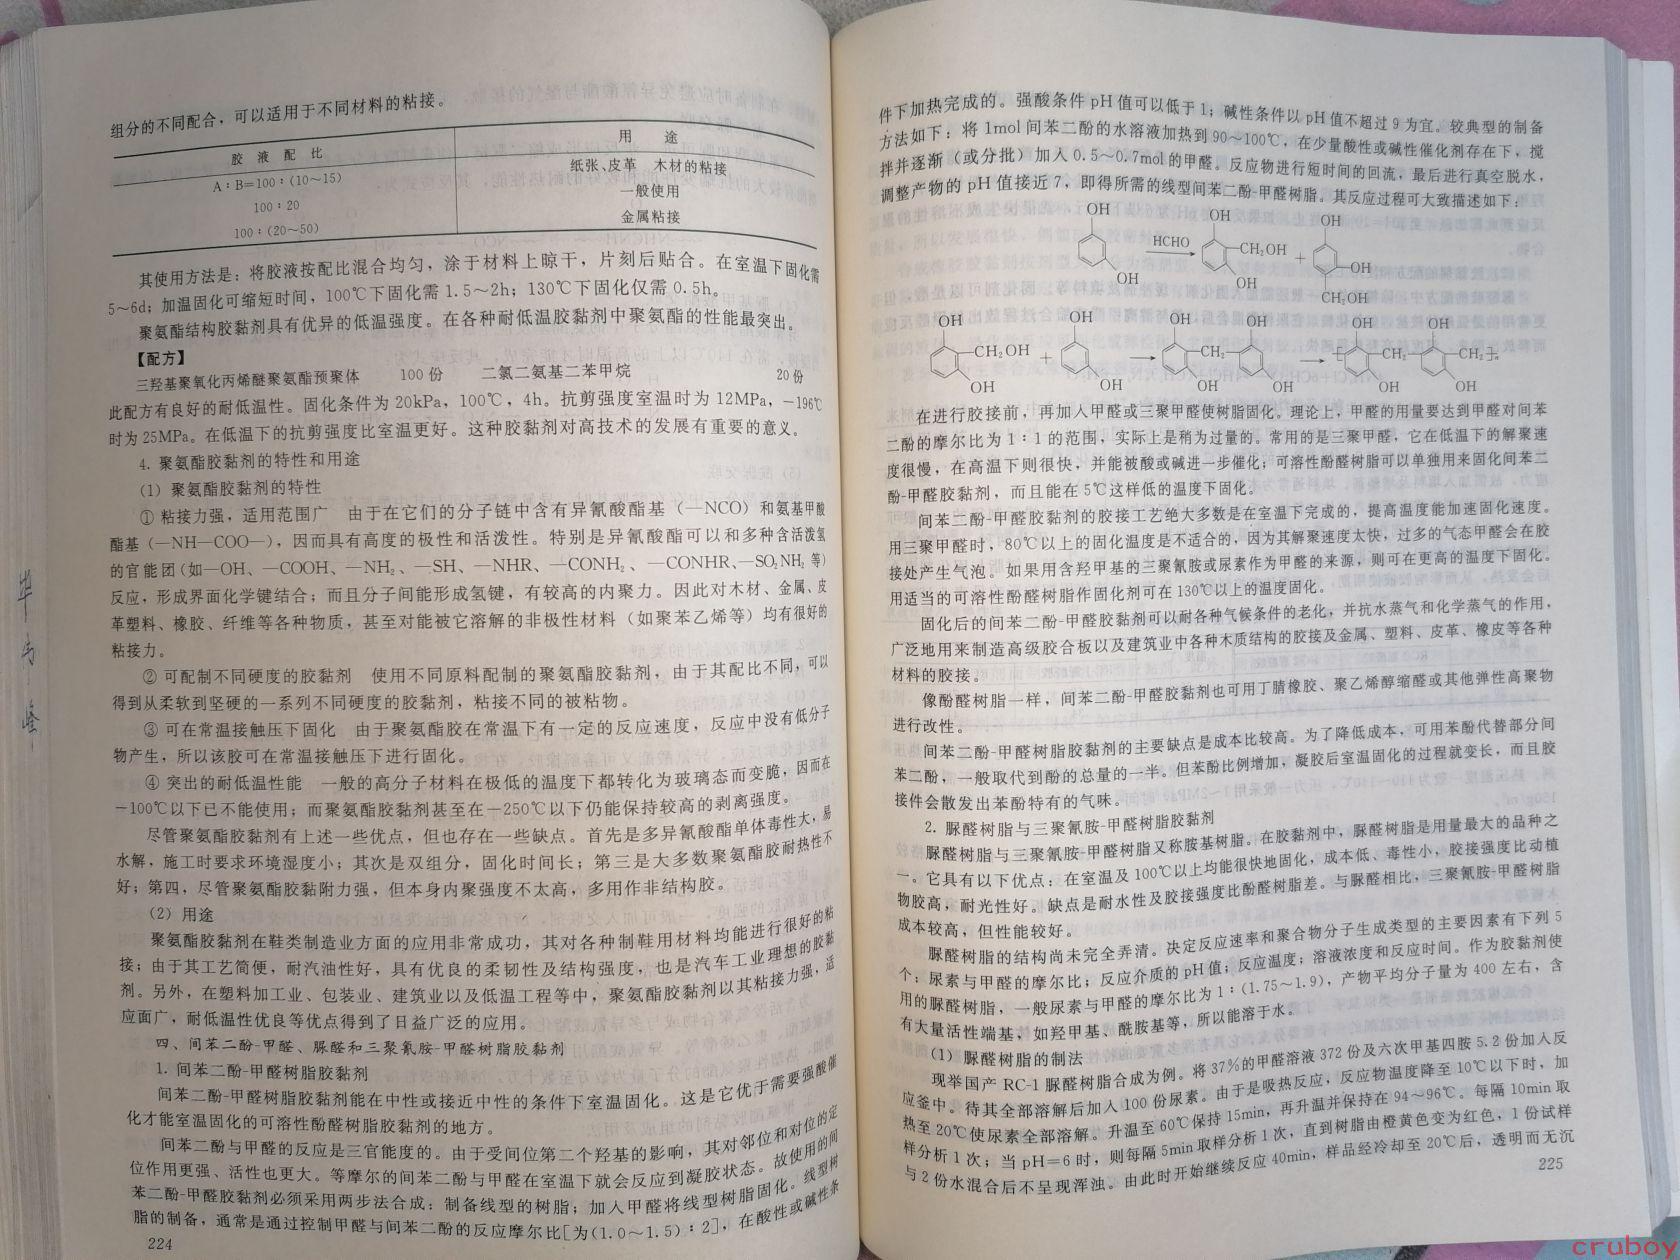 组分的不同配合，可以适用于不同材料的粘接。
胶 液 配 比
用 途
A：B=100：(10～15)
纸张、皮革 木材的粘接
100：20
一般使用
100：(20～50)
金属粘接
其使用方法是：将胶液按配比混合均匀，涂于材料上晾干，片刻后贴合。在室温下固化需
5～6d；加温固化可缩短时间，100℃下固化需 1.5～2h；130℃下固化仅需 0.5h。
聚氨酯结构胶黏剂具有优异的低温强度。在各种耐低温胶黏剂中聚氨酯的性能最突出。
【配方】
三羟基聚氧化丙烯醚聚氨酯预聚体 100 份 二氯二氨基二苯甲烷 20 份
此配方有良好的耐低温性。固化条件为 20kPa，100℃，4h。抗剪强度室温时为 12MPa，－196℃
时为 25MPa。在低温下的抗剪强度比室温更好。这种胶黏剂对高技术的发展有重要的意义。
4. 聚氨酯胶黏剂的特性和用途
(1) 聚氨酯胶黏剂的特性
① 粘接力强，适用范围广 由于在它们的分子链中含有异氰酸酯基（—NCO）和氨基甲酸
酯基（—NH—COO—），因而具有高度的极性和活泼性。特别是异氰酸酯可以和多种含活泼氢
的官能团(如—OH、—COOH、—NH₂、—SH、—NHR、—CONH₂、—CONHR、—SO₂NH₂ 等)
反应，形成界面化学键结合；而且分子间能形成氢键，有较高的内聚力。因此对木材、金属、皮
革塑料、橡胶、纤维等各种物质，甚至对能被它溶解的非极性材料（如聚苯乙烯等）均有很好的
粘接力。
② 可配制不同硬度的胶黏剂 使用不同原料配制的聚氨酯胶黏剂，由于其配比不同，可以
得到从柔软到坚硬的一系列不同硬度的胶黏剂，粘接不同的被粘物。
③ 可在常温接触压下固化 由于聚氨酯胶在常温下有一定的反应速度，反应中没有低分子
物产生，所以该胶可在常温接触压下进行固化。
④ 突出的耐低温性能 一般的高分子材料在极低的温度下都转化为玻璃态而变脆，因而在
－100℃以下已不能使用；而聚氨酯胶黏剂甚至在－250℃以下仍能保持较高的剥离强度。
尽管聚氨酯胶黏剂有上述一些优点，但也存在一些缺点。首先是多异氰酸酯单体毒性大，易
水解，施工时要求环境湿度小；其次是双组分，固化时间长；第三是大多数聚氨酯胶耐热性不
好；第四，尽管聚氨酯胶黏附力强，但本身内聚强度不太高，多用作非结构胶。
(2) 用途
聚氨酯胶黏剂在鞋类制造业方面的应用非常成功，其对各种制鞋用材料均能进行很好的粘
接；由于其工艺简便，耐汽油性好，具有优良的柔韧性及结构强度，也是汽车工业理想的胶黏
剂。另外，在塑料加工业、包装业、建筑业以及低温工程等中，聚氨酯胶黏剂以其粘接力强，适
应面广，耐低温性优良等优点得到了日益广泛的应用。
四、间苯二酚-甲醛、脲醛和三聚氰胺-甲醛树脂胶黏剂
1. 间苯二酚-甲醛树脂胶黏剂
间苯二酚-甲醛树脂胶黏剂能在中性或接近中性的条件下室温固化。这是它优于需要强酸催
化才能室温固化的可溶性酚醛树脂胶黏剂的地方。
间苯二酚与甲醛的反应是三官能度的。由于受间位第二个羟基的影响，其对邻位和对位的定
位作用更强、活性也更大。等摩尔的间苯二酚与甲醛在室温下就会反应到凝胶状态。故使用的间
苯二酚-甲醛胶黏剂必须采用两步法合成：制备线型的树脂；加入甲醛将线型树脂固化。线型树
脂的制备，通常是通过控制甲醛与间苯二酚的反应摩尔比[为(1.0～1.5)：2]，在酸性或碱性条
224
件下加热完成的。强酸条件 pH 值可以低于 1；碱性条件以 pH 值不超过 9 为宜。较典型的制备
方法如下：将 1mol 间苯二酚的水溶液加热到 90～100℃，在少量酸性或碱性催化剂存在下，搅
拌并逐渐（或分批）加入 0.5～0.7mol 的甲醛。反应物进行短时间的回流，最后进行真空脱水，
调整产物的 pH 值接近 7，即得所需的线型间苯二酚-甲醛树脂。其反应过程可大致描述如下：
OH OH OH
HCHO CH₂OH + OH
OH OH CH₂OH
OH OH OH OH OH OH
CH₂OH + CH₂ CH₂ CH₂ n
OH OH OH OH OH OH
在进行胶接前，再加入甲醛或三聚甲醛使树脂固化。理论上，甲醛的用量要达到甲醛对间苯
二酚的摩尔比为 1：1 的范围，实际上是稍为过量的。常用的是三聚甲醛，它在低温下的解聚速
度很慢，在高温下则很快，并能被酸或碱进一步催化；可溶性酚醛树脂可以单独用来固化间苯二
酚-甲醛胶黏剂，而且能在 5℃这样低的温度下固化。
间苯二酚-甲醛胶黏剂的胶接工艺绝大多数是在室温下完成的，提高温度能加速固化速度。
用三聚甲醛时，80℃以上的固化温度是不适合的，因为其解聚速度太快，过多的气态甲醛会在胶
接处产生气泡。如果用含羟甲基的三聚氰胺或尿素作为甲醛的来源，则可在更高的温度下固化。
用适当的可溶性酚醛树脂作固化剂可在 130℃以上的温度固化。
固化后的间苯二酚-甲醛胶黏剂可以耐各种气候条件的老化，并抗水蒸气和化学蒸气的作用，
广泛地用来制造高级胶合板以及建筑业中各种木质结构的胶接及金属、塑料、皮革、橡皮等各种
材料的胶接。
像酚醛树脂一样，间苯二酚-甲醛胶黏剂也可用丁腈橡胶、聚乙烯醇缩醛或其他弹性高聚物
进行改性。
间苯二酚-甲醛树脂胶黏剂的主要缺点是成本比较高。为了降低成本，可用苯酚代替部分间
苯二酚，一般取代到酚的总量的一半。但苯酚比例增加，凝胶后室温固化的过程就变长，而且胶
接件会散发出苯酚特有的气味。
2. 脲醛树脂与三聚氰胺-甲醛树脂胶黏剂
脲醛树脂与三聚氰胺-甲醛树脂又称胺基树脂。在胶黏剂中，脲醛树脂是用量最大的品种之
一。它具有以下优点：在室温及 100℃以上均能很快地固化，成本低、毒性小，胶接强度比动植
物胶高，耐光性好。缺点是耐水性及胶接强度比酚醛树脂差。与脲醛相比，三聚氰胺-甲醛树脂
成本较高，但性能较好。
脲醛树脂的结构尚未完全弄清。决定反应速率和聚合物分子生成类型的主要因素有下列 5
个：尿素与甲醛的摩尔比；反应介质的 pH 值；反应温度；溶液浓度和反应时间。作为胶黏剂使
用的脲醛树脂，一般尿素与甲醛的摩尔比为 1：(1.75～1.9)，产物平均分子量为 400 左右，含
有大量活性端基，如羟甲基、酰胺基等，所以能溶于水。
(1) 脲醛树脂的制法
现举国产 RC-1 脲醛树脂合成为例。将 37%的甲醛溶液 372 份及六次甲基四胺 5.2 份加入反
应釜中。待其全部溶解后加入 100 份尿素。由于是吸热反应，反应物温度降至 10℃以下时，加
热至 20℃使尿素全部溶解。升温至 60℃保持 15min，再升温并保持在 94～96℃。每隔 10min 取
样分析 1 次；当 pH=6 时，则每隔 5min 取样分析 1 次，直到树脂由橙黄色变为红色，1 份试样
与 2 份水混合后不呈现浑浊。由此时开始继续反应 40min，样品经冷却至 20℃后，透明而无沉
225
cruboy